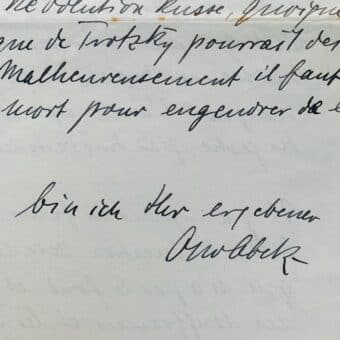 Révolution Russe, quoique
que de Trotzky pourrait de
Malheureusement il faut
mort pour engendrer de
bin ich Ihr ergebener
Otto Abetz